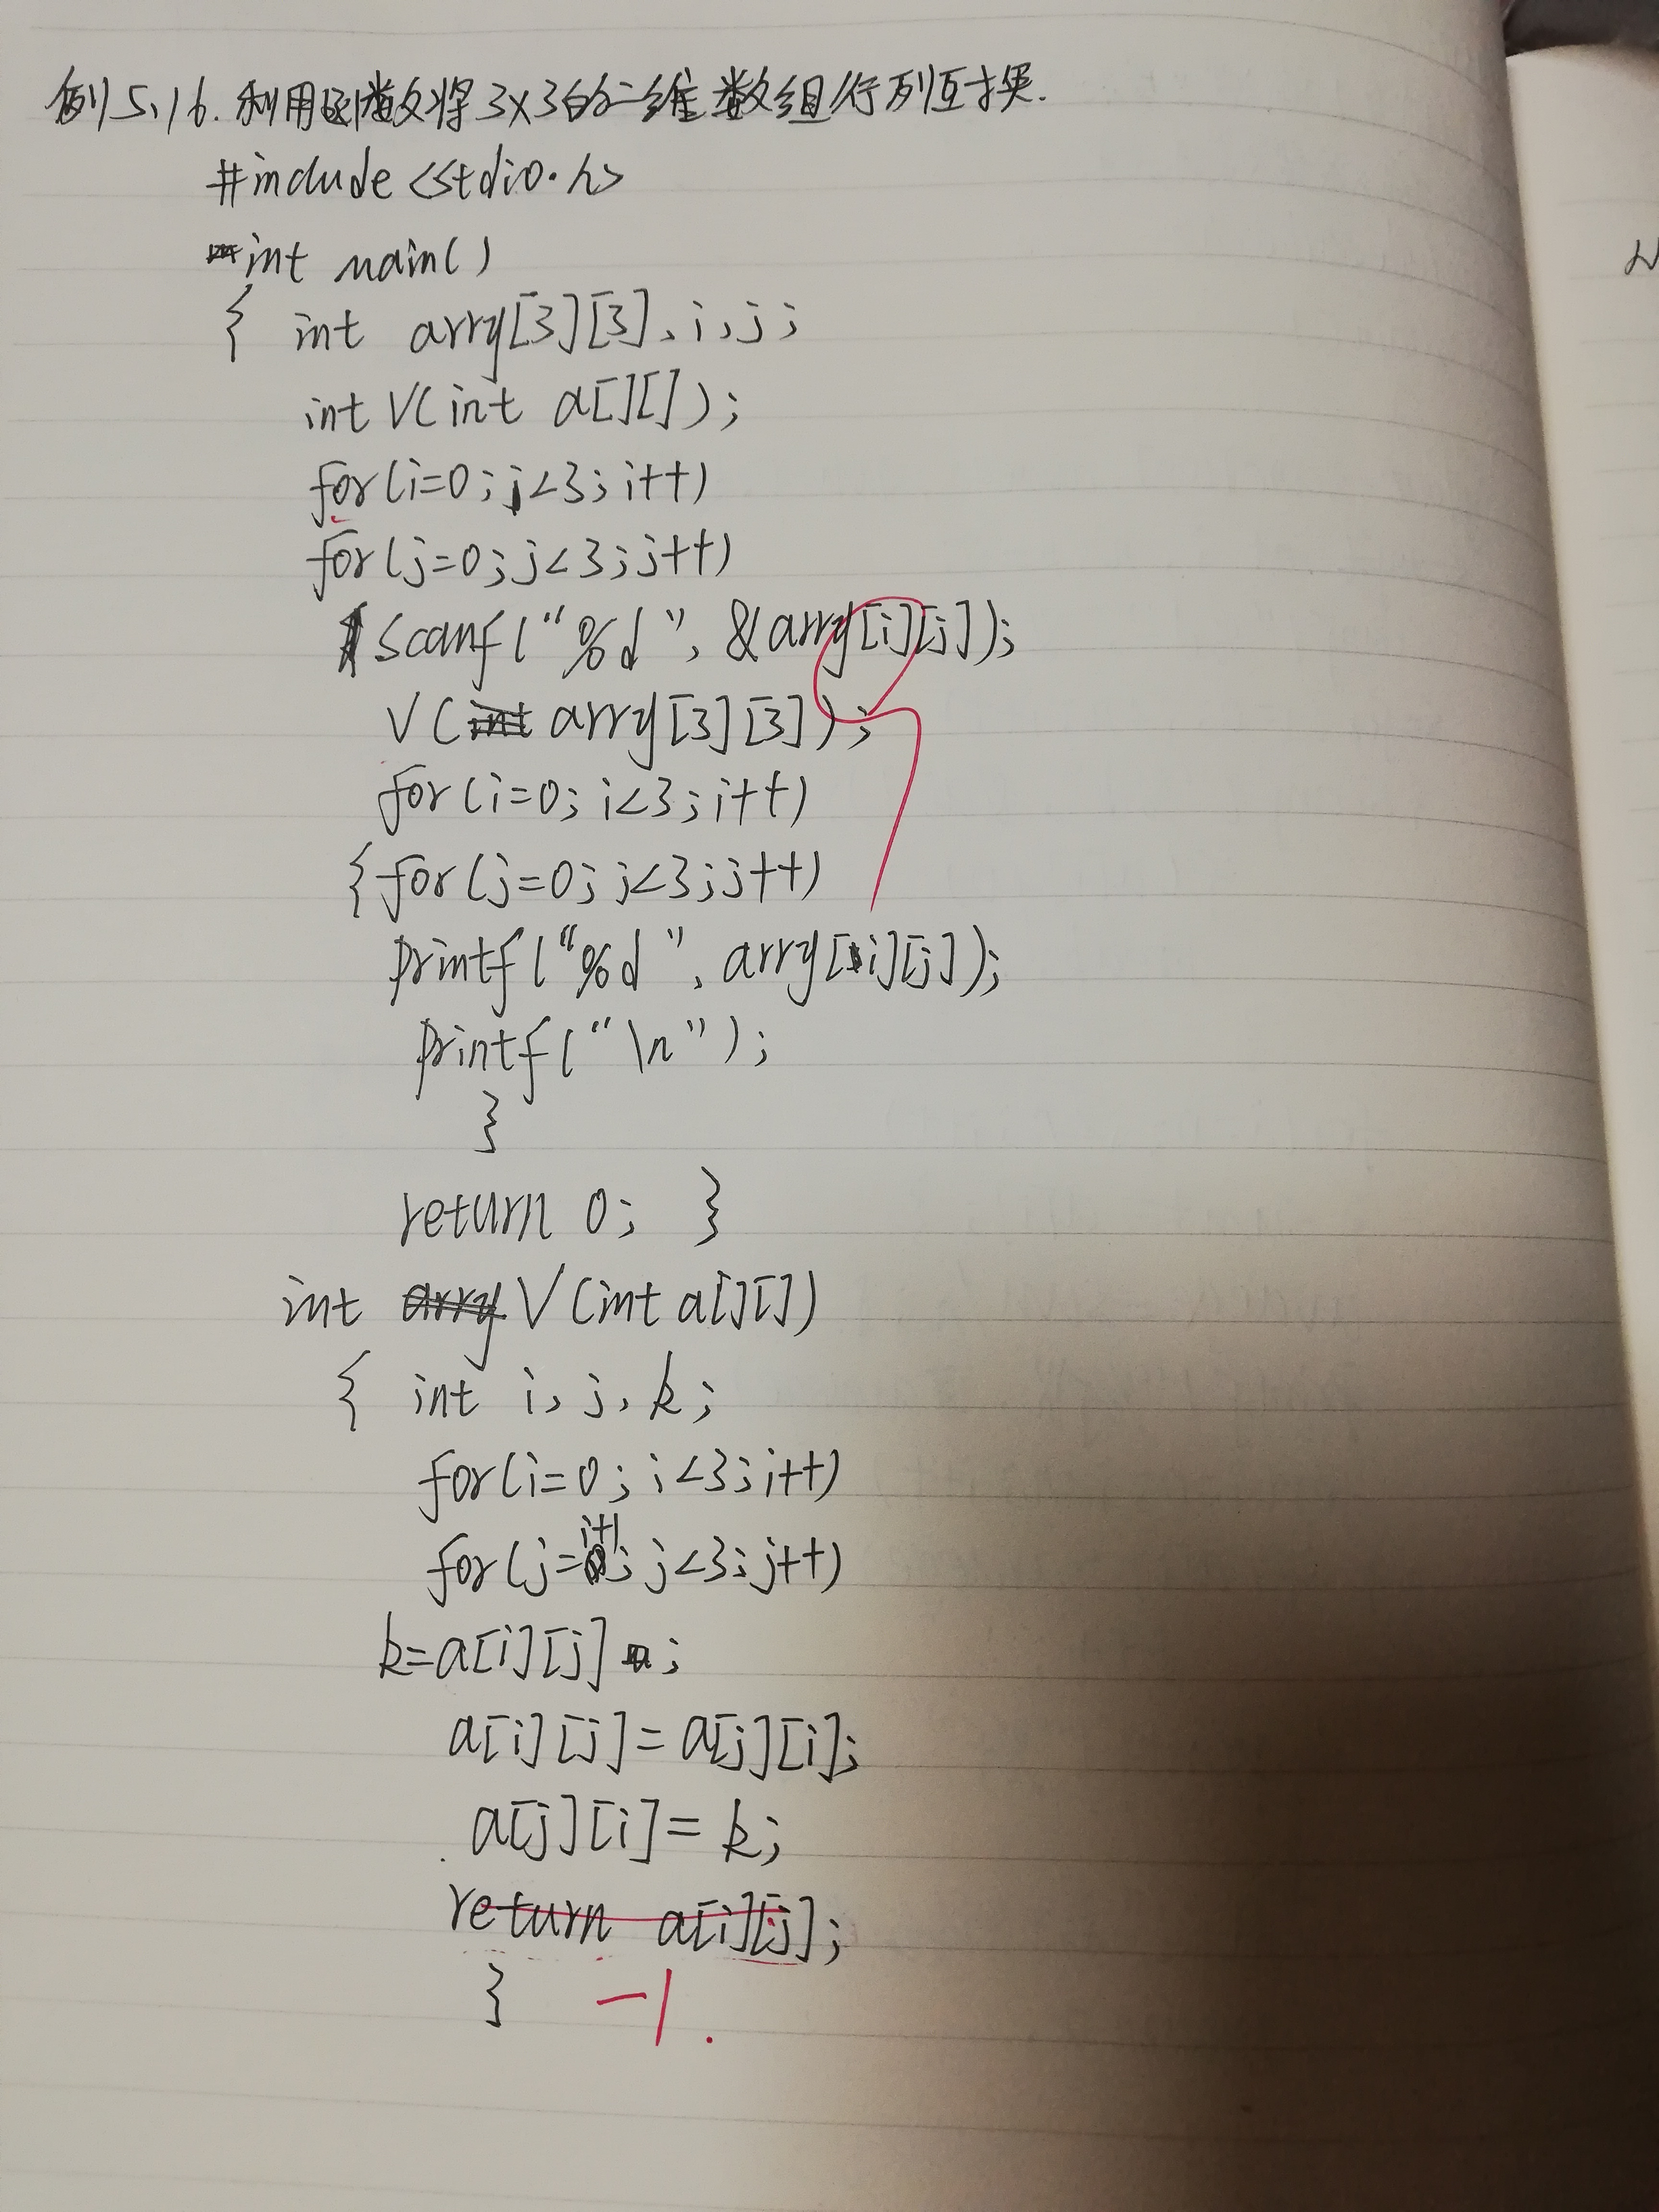 例5.16.利用函数将3×3的二维数组行列互换.
#include <stdio.h>
int main()
{ int arry[3][3],i,j;
int V(int a[][]);
for(i=0;i<3;i++)
for(j=0;j<3;j++)
scanf("%d",&arry[i][j]);
V(int arry[3][3]);
for(i=0;i<3;i++)
{for(j=0;j<3;j++)
printf("%d",arry[i][j]);
printf("\n");
}
return 0; }
int arry V(int a[][])
{ int i,j,k;
for(i=0;i<3;i++)
for(j=i+1;j<3;j++)
k=a[i][j];
a[i][j]=a[j][i];
a[j][i]=k;
return a[i][j];
} -1.